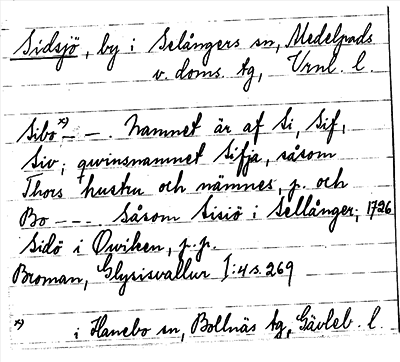 Sidsjö, by i Selångers sn, Medelpads
v. doms. tg, Vrnl. l.
Sibo x) – – . Namnet är af Si, Sif,
Siv; qwinsnamnet Sifja, såsom
Thors hustru och nämnes, p. och
Bo - - - Såsom Sisiö i Sellånger; 1726
Sidö i Owiken, p.p.
Broman, Glysisvallur I:4 s. 269
x) i Hanebo sn, Bollnäs tg, Gävleb. l.